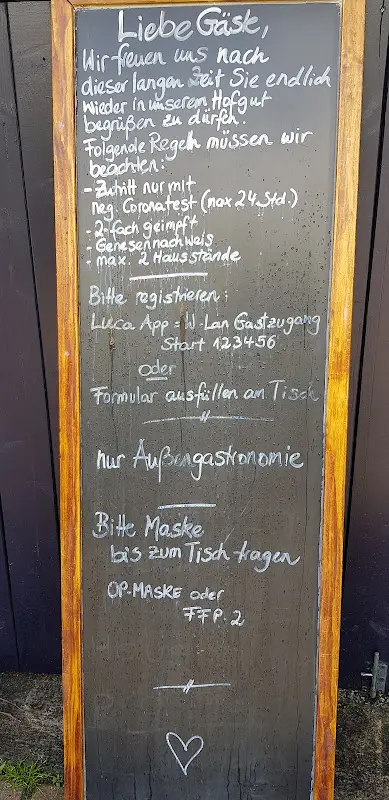 Liebe Gäste,
Wir freuen uns nach
dieser langen Zeit Sie endlich
wieder in unserem Hofgut
begrüßen zu dürfen.
Folgende Regeln müssen wir
beachten:
- Zutritt nur mit
neg. Coronatest (max 24 Std.)
- 2-fach geimpft
- Genesennachweis
- max. 2 Hausstände
Bitte registrieren:
Luca App = W-Lan Gastzugang
Start 123456
oder
Formular ausfüllen am Tisch
nur Außengastronomie
Bitte Maske
bis zum Tisch tragen
OP-MASKE oder
FFP.2